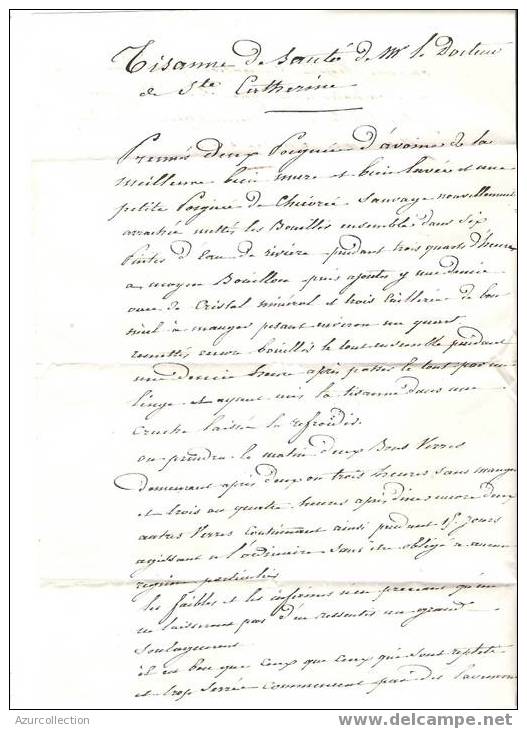 Tisanne de santé de Mr le Docteur
de Ste Catherine
Prennés deux Poignée d'avoine de la
meilleure bien mure et bien lavée et une
petite Poignée de Chicorée Sauvage nouvellement
arrachée mettés les Bouillir ensemble dans Six
Pintes d'Eau de rivière pendant trois quarts d'heure
a moyen Bouillon puis ajoutés y une demie
once de Cristal minéral et trois Cuillerée de bon
miel à manger pesant environ un quart
remettés encore bouillir le tout ensemble pendant
une demie heure après passés le tout par un
linge et ayant mis la tisanne dans une
Cruche laissés la refroidir.
on prendra le matin deux Bons Verres
demeurant après deux ou trois heures sans manger
et trois ou quatre heures après diné encore deux
autres Verres Continuant ainsi pendant 15 jours
agissant a l'ordinaire Sans être obligé a aucun
régime particulier
les faibles et les infirmes n'en prenant qu'un
ne laisseront pas d'en ressentir un grand
Soulagement
il est bon que Ceux que Ceux qui Sont replets
et trop Serrés Commencent par des lavements
Azurcollection
www.delcampe.net